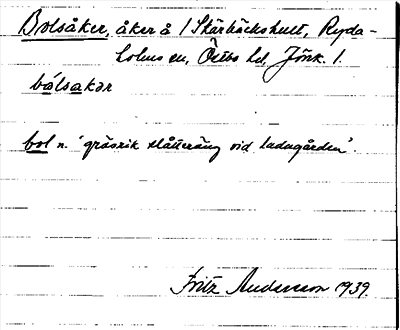 Bolsåker, åker å 1 Skärbäckshult, Ryda-
holms sn, Östbo hd, Jönk. l.
bålsakər
bol n. 'gräsrik slåtteräng vid ladugården'.
Fritz Andersson 1939.